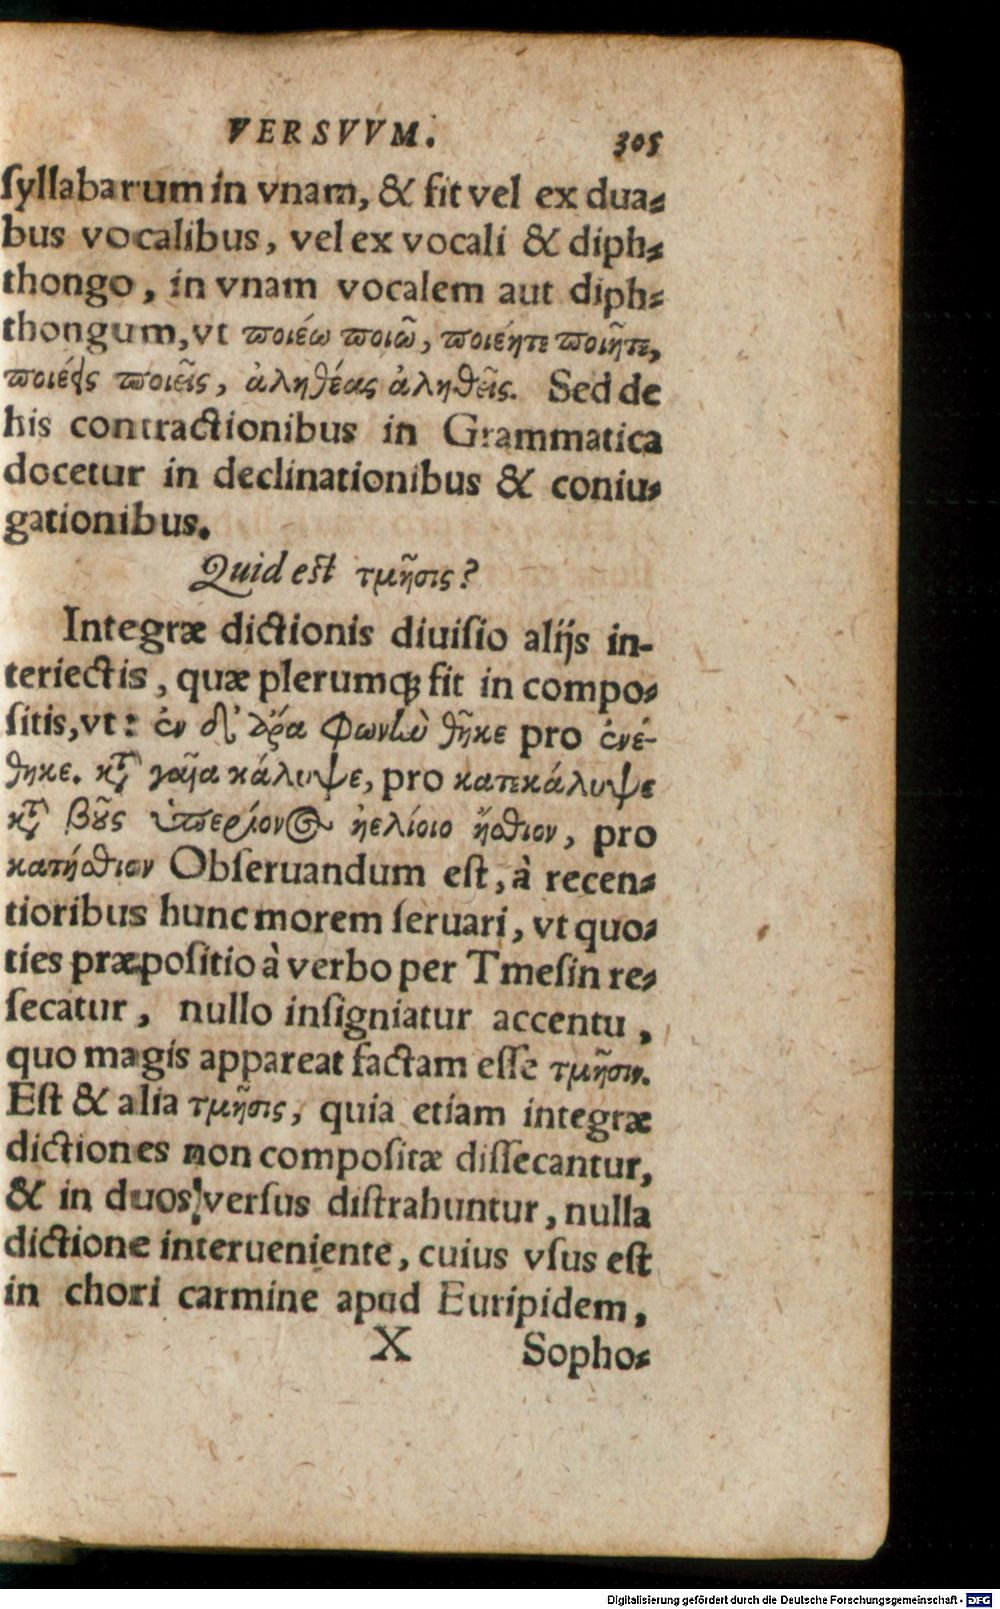 VERSVVM. 305
syllabarum in vnam, & fit vel ex dua-
bus vocalibus, vel ex vocali & diph-
thongo, in vnam vocalem aut diph-
thongum, vt ποιέω ποιῶ, ποιέητε ποιῆτε,
ποιέεις ποιεῖς, ἀληθέας ἀληθεῖς. Sed de
his contractionibus in Grammatica
docetur in declinationibus & coniu-
gationibus.
Quid est τμῆσις?
Integræ dictionis diuisio alijs in-
teriectis, quæ plerumq; fit in compo-
sitis, vt: ἐν δ' ἄρα φωνὴν θῆκε pro ἐνέ-
θηκε. κατὰ γαῖα κάλυψε, pro κατεκάλυψε
κατὰ βοῦς ὑπερίονος ἠελίοιο ἤσθιον, pro
κατήσθιον Obseruandum est, à recen-
tioribus hunc morem seruari, vt quo-
ties præpositio à verbo per Tmesin re-
secatur, nullo insigniatur accentu,
quo magis appareat factam esse τμῆσιν.
Est & alia τμῆσις, quia etiam integræ
dictiones non compositæ dissecantur,
& in duos versus distrahuntur, nulla
dictione interueniente, cuius vsus est
in chori carmine apud Euripidem,
X Sopho-
Digitalisierung gefördert durch die Deutsche Forschungsgemeinschaft - DFG